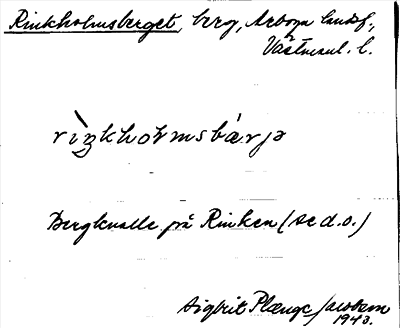 Rinkholmsberget, berg, Arboga landsf.,
Västmanl. l.
rìŋkholmsbárjə
Bergknalle på Rinken (se d.o.)
Sigbrit Plænge Jacobson
1943.